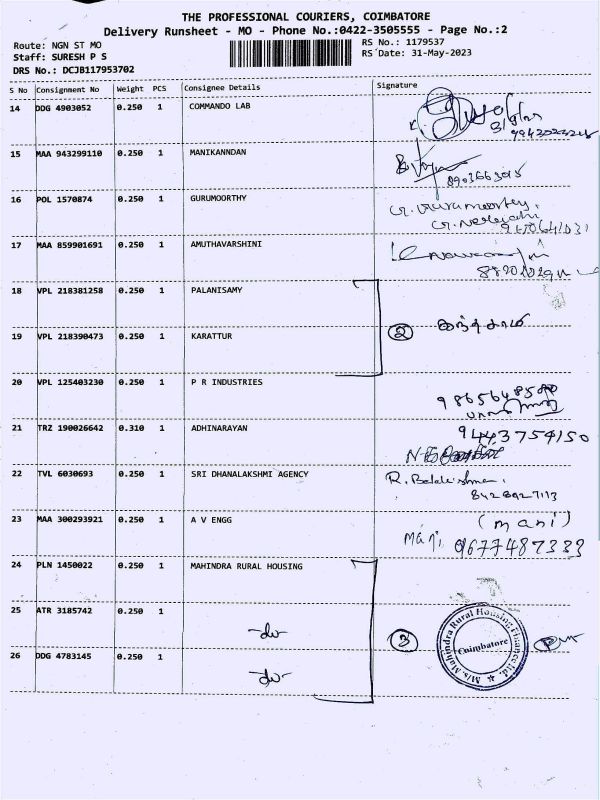 THE PROFESSIONAL COURIERS, COIMBATORE
Delivery Runsheet - MO - Phone No.:0422-3505555 - Page No.:2
Route: NGN ST MO
RS No.: 1179537
Staff: SURESH P S
RS Date: 31-May-2023
DRS No.: DCJB117953702
S No Consignment No Weight PCS Consignee Details Signature
14 DDG 4903052 0.250 1 COMMANDO LAB
15 MAA 943299110 0.250 1 MANIKANNDAN
8903663015
16 POL 1570874 0.250 1 GURUMOORTHY
G. Gurumoorthy,
17 MAA 859901691 0.250 1 AMUTHAVARSHINI
18 VPL 218381258 0.250 1 PALANISAMY
19 VPL 218390473 0.250 1 KARATTUR
2 கந்தசாமி
20 VPL 125403230 0.250 1 P R INDUSTRIES
21 TRZ 190026642 0.310 1 ADHINARAYAN
9443754150
22 TVL 6030693 0.250 1 SRI DHANALAKSHMI AGENCY
R. Balakrishnan.
23 MAA 300293921 0.250 1 A V ENGG
(mani)
Mani, 9677487333
24 PLN 1450022 0.250 1 MAHINDRA RURAL HOUSING
25 ATR 3185742 0.250 1
-do-
3
M/s. Mahindra Rural Housing Finance Ltd.
Coimbatore
26 DDG 4783145 0.250 1
-do-